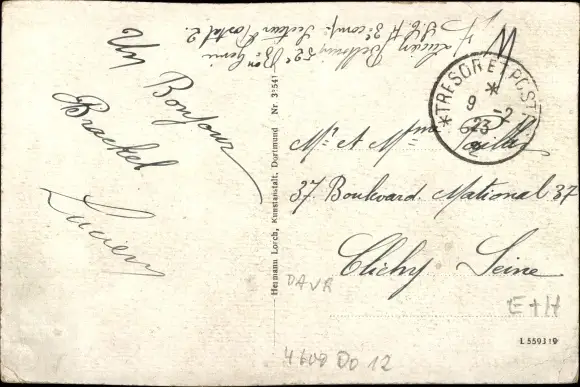 Un Bonjour
Brackel
Lucien
Lucien
52e Bon Génie
3e comp. Secteur Postal 2.
TRESOR ET POSTES
*
9 -2
23
*
2
Mr et Mme
37 Boulevard National 37
Clichy Seine
Hermann Lorch, Kunstanstalt, Dortmund Nr. 3541
DAVR
E+H
L559119
4609 Do 12